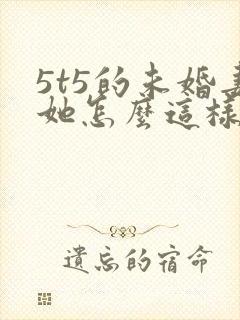 5t5的未婚妻
她怎麼這樣
遺忘的宿命